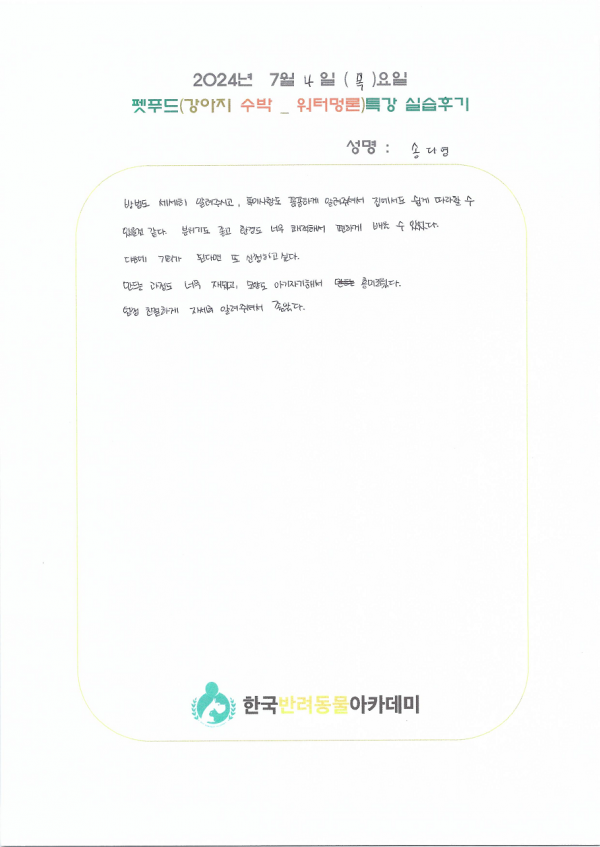 2024년 7월 4일 (목)요일
펫푸드(강아지 수박 _ 워터멍론)특강 실습후기
성명 : 송다영
방법도 세세히 알려주시고, 특이사항도 꼼꼼하게 알려주셔서 집에서도 쉽게 따라할 수
있을것 같다. 분위기도 좋고 환경도 너무 쾌적해서 편하게 배울 수 있었다.
다음에 기회가 된다면 또 신청하고싶다.
만드는 과정도 너무 재밌고, 모양도 아기자기해서 흥미로웠다.
설명 친절하게 자세히 알려주셔서 좋았다.
한국반려동물아카데미